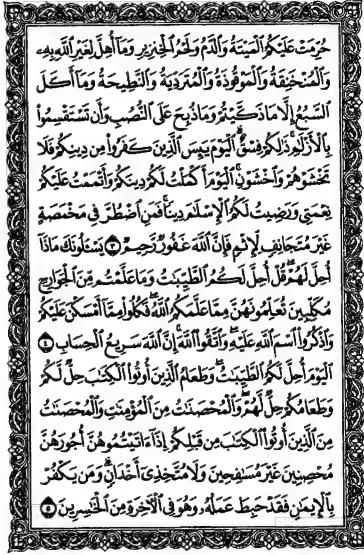 حُرِّمَتْ عَلَيْكُمُ الْمَيْتَةُ وَالدَّمُ وَلَحْمُ الْخِنزِيرِ وَمَا أُهِلَّ لِغَيْرِ اللَّهِ بِهِ
وَالْمُنْخَنِقَةُ وَالْمَوْقُوذَةُ وَالْمُتَرَدِّيَةُ وَالنَّطِيحَةُ وَمَا أَكَلَ
السَّبُعُ إِلَّا مَا ذَكَّيْتُمْ وَمَا ذُبِحَ عَلَى النُّصُبِ وَأَن تَسْتَقْسِمُوا
بِالْأَزْلَامِ ذَٰلِكُمْ فِسْقٌ الْيَوْمَ يَئِسَ الَّذِينَ كَفَرُوا مِن دِينِكُمْ فَلَا
تَخْشَوْهُمْ وَاخْشَوْنِ الْيَوْمَ أَكْمَلْتُ لَكُمْ دِينَكُمْ وَأَتْمَمْتُ عَلَيْكُمْ
نِعْمَتِي وَرَضِيتُ لَكُمُ الْإِسْلَامَ دِينًا فَمَنِ اضْطُرَّ فِي مَخْمَصَةٍ
غَيْرَ مُتَجَانِفٍ لِّإِثْمٍ فَإِنَّ اللَّهَ غَفُورٌ رَّحِيمٌ ٣ يَسْأَلُونَكَ مَاذَا
أُحِلَّ لَهُمْ قُلْ أُحِلَّ لَكُمُ الطَّيِّبَاتُ وَمَا عَلَّمْتُم مِّنَ الْجَوَارِحِ
مُكَلِّبِينَ تُعَلِّمُونَهُنَّ مِمَّا عَلَّمَكُمُ اللَّهُ فَكُلُوا مِمَّا أَمْسَكْنَ عَلَيْكُمْ
وَاذْكُرُوا اسْمَ اللَّهِ عَلَيْهِ وَاتَّقُوا اللَّهَ إِنَّ اللَّهَ سَرِيعُ الْحِسَابِ ٤
الْيَوْمَ أُحِلَّ لَكُمُ الطَّيِّبَاتُ وَطَعَامُ الَّذِينَ أُوتُوا الْكِتَابَ حِلٌّ لَّكُمْ
وَطَعَامُكُمْ حِلٌّ لَّهُمْ وَالْمُحْصَنَاتُ مِنَ الْمُؤْمِنَاتِ وَالْمُحْصَنَاتُ
مِنَ الَّذِينَ أُوتُوا الْكِتَابَ مِن قَبْلِكُمْ إِذَا آتَيْتُمُوهُنَّ أُجُورَهُنَّ
مُحْصِنِينَ غَيْرَ مُسَافِحِينَ وَلَا مُتَّخِذِي أَخْدَانٍ وَمَن يَكْفُرْ
بِالْإِيمَانِ فَقَدْ حَبِطَ عَمَلُهُ وَهُوَ فِي الْآخِرَةِ مِنَ الْخَاسِرِينَ ٥